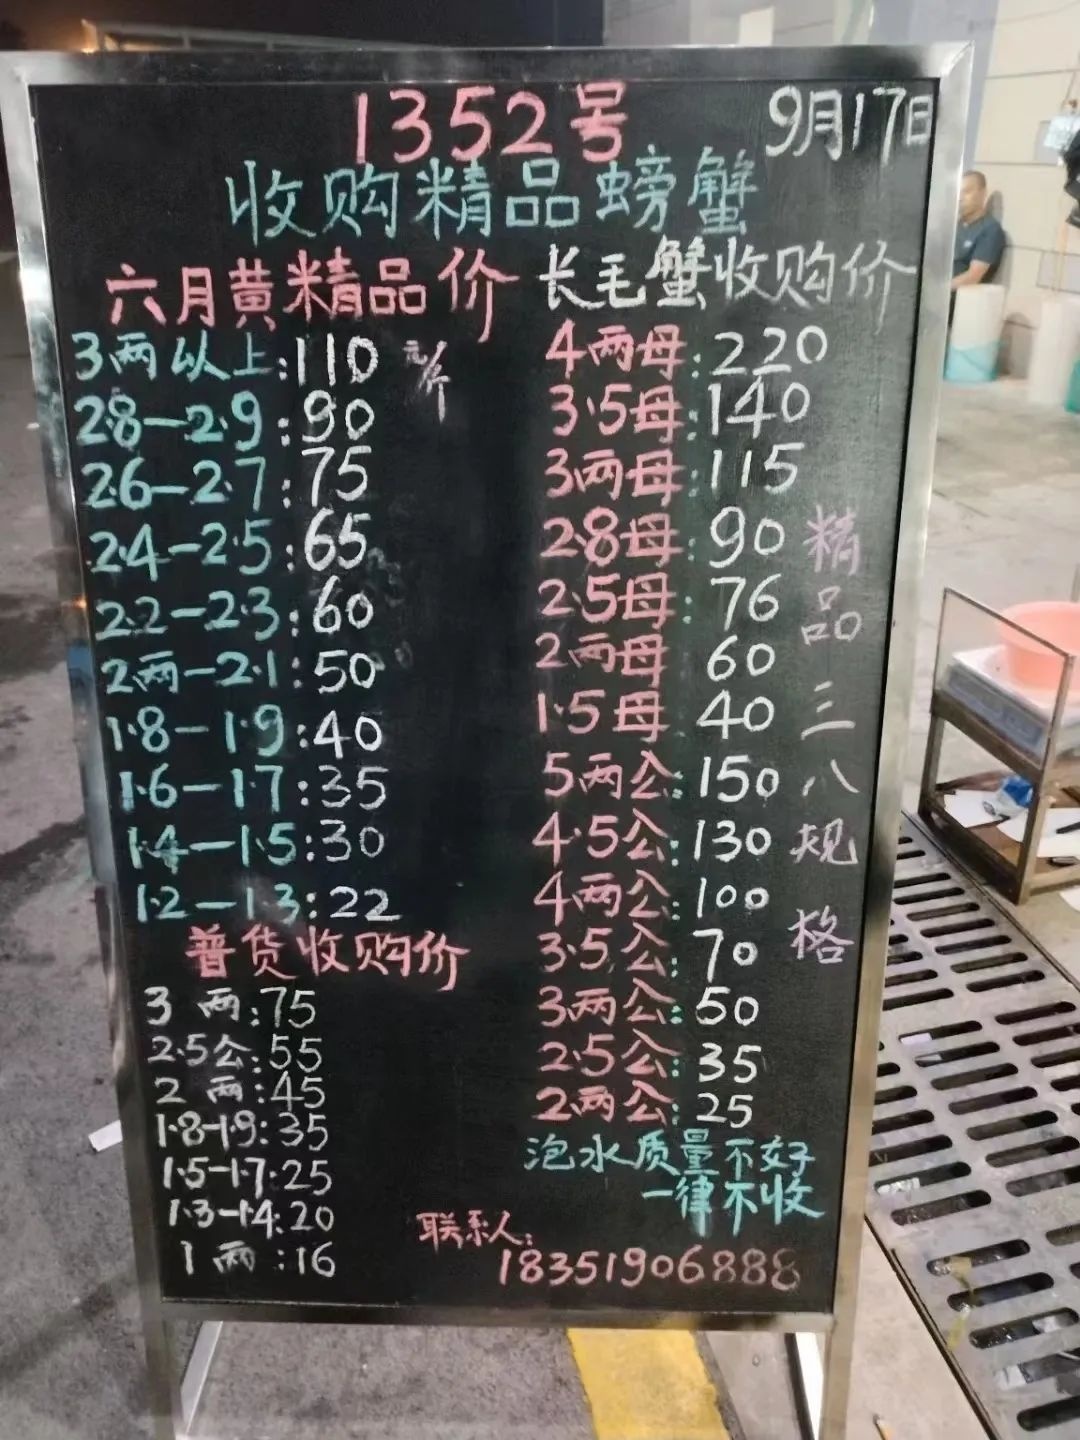 1352号
9月17日
收购精品螃蟹
六月黄精品价
3两以上:110 元/斤
2.8-2.9:90
2.6-2.7:75
2.4-2.5:65
2.2-2.3:60
2两-2.1:50
1.8-1.9:40
1.6-1.7:35
1.4-1.5:30
1.2-1.3:22
普货收购价
3两:75
2.5公:55
2两:45
1.8-1.9:35
1.5-1.7:25
1.3-1.4:20
1两:16
长毛蟹收购价
4两母:220
3.5母:140
3两母:115
2.8母:90
2.5母:76
2两母:60
1.5母:40
5两公:150
4.5公:130
4两公:100
3.5公:70
3两公:50
2.5公:35
2两公:25
精品三八规格
泡水质量不好
一律不收
联系人:
18351906888